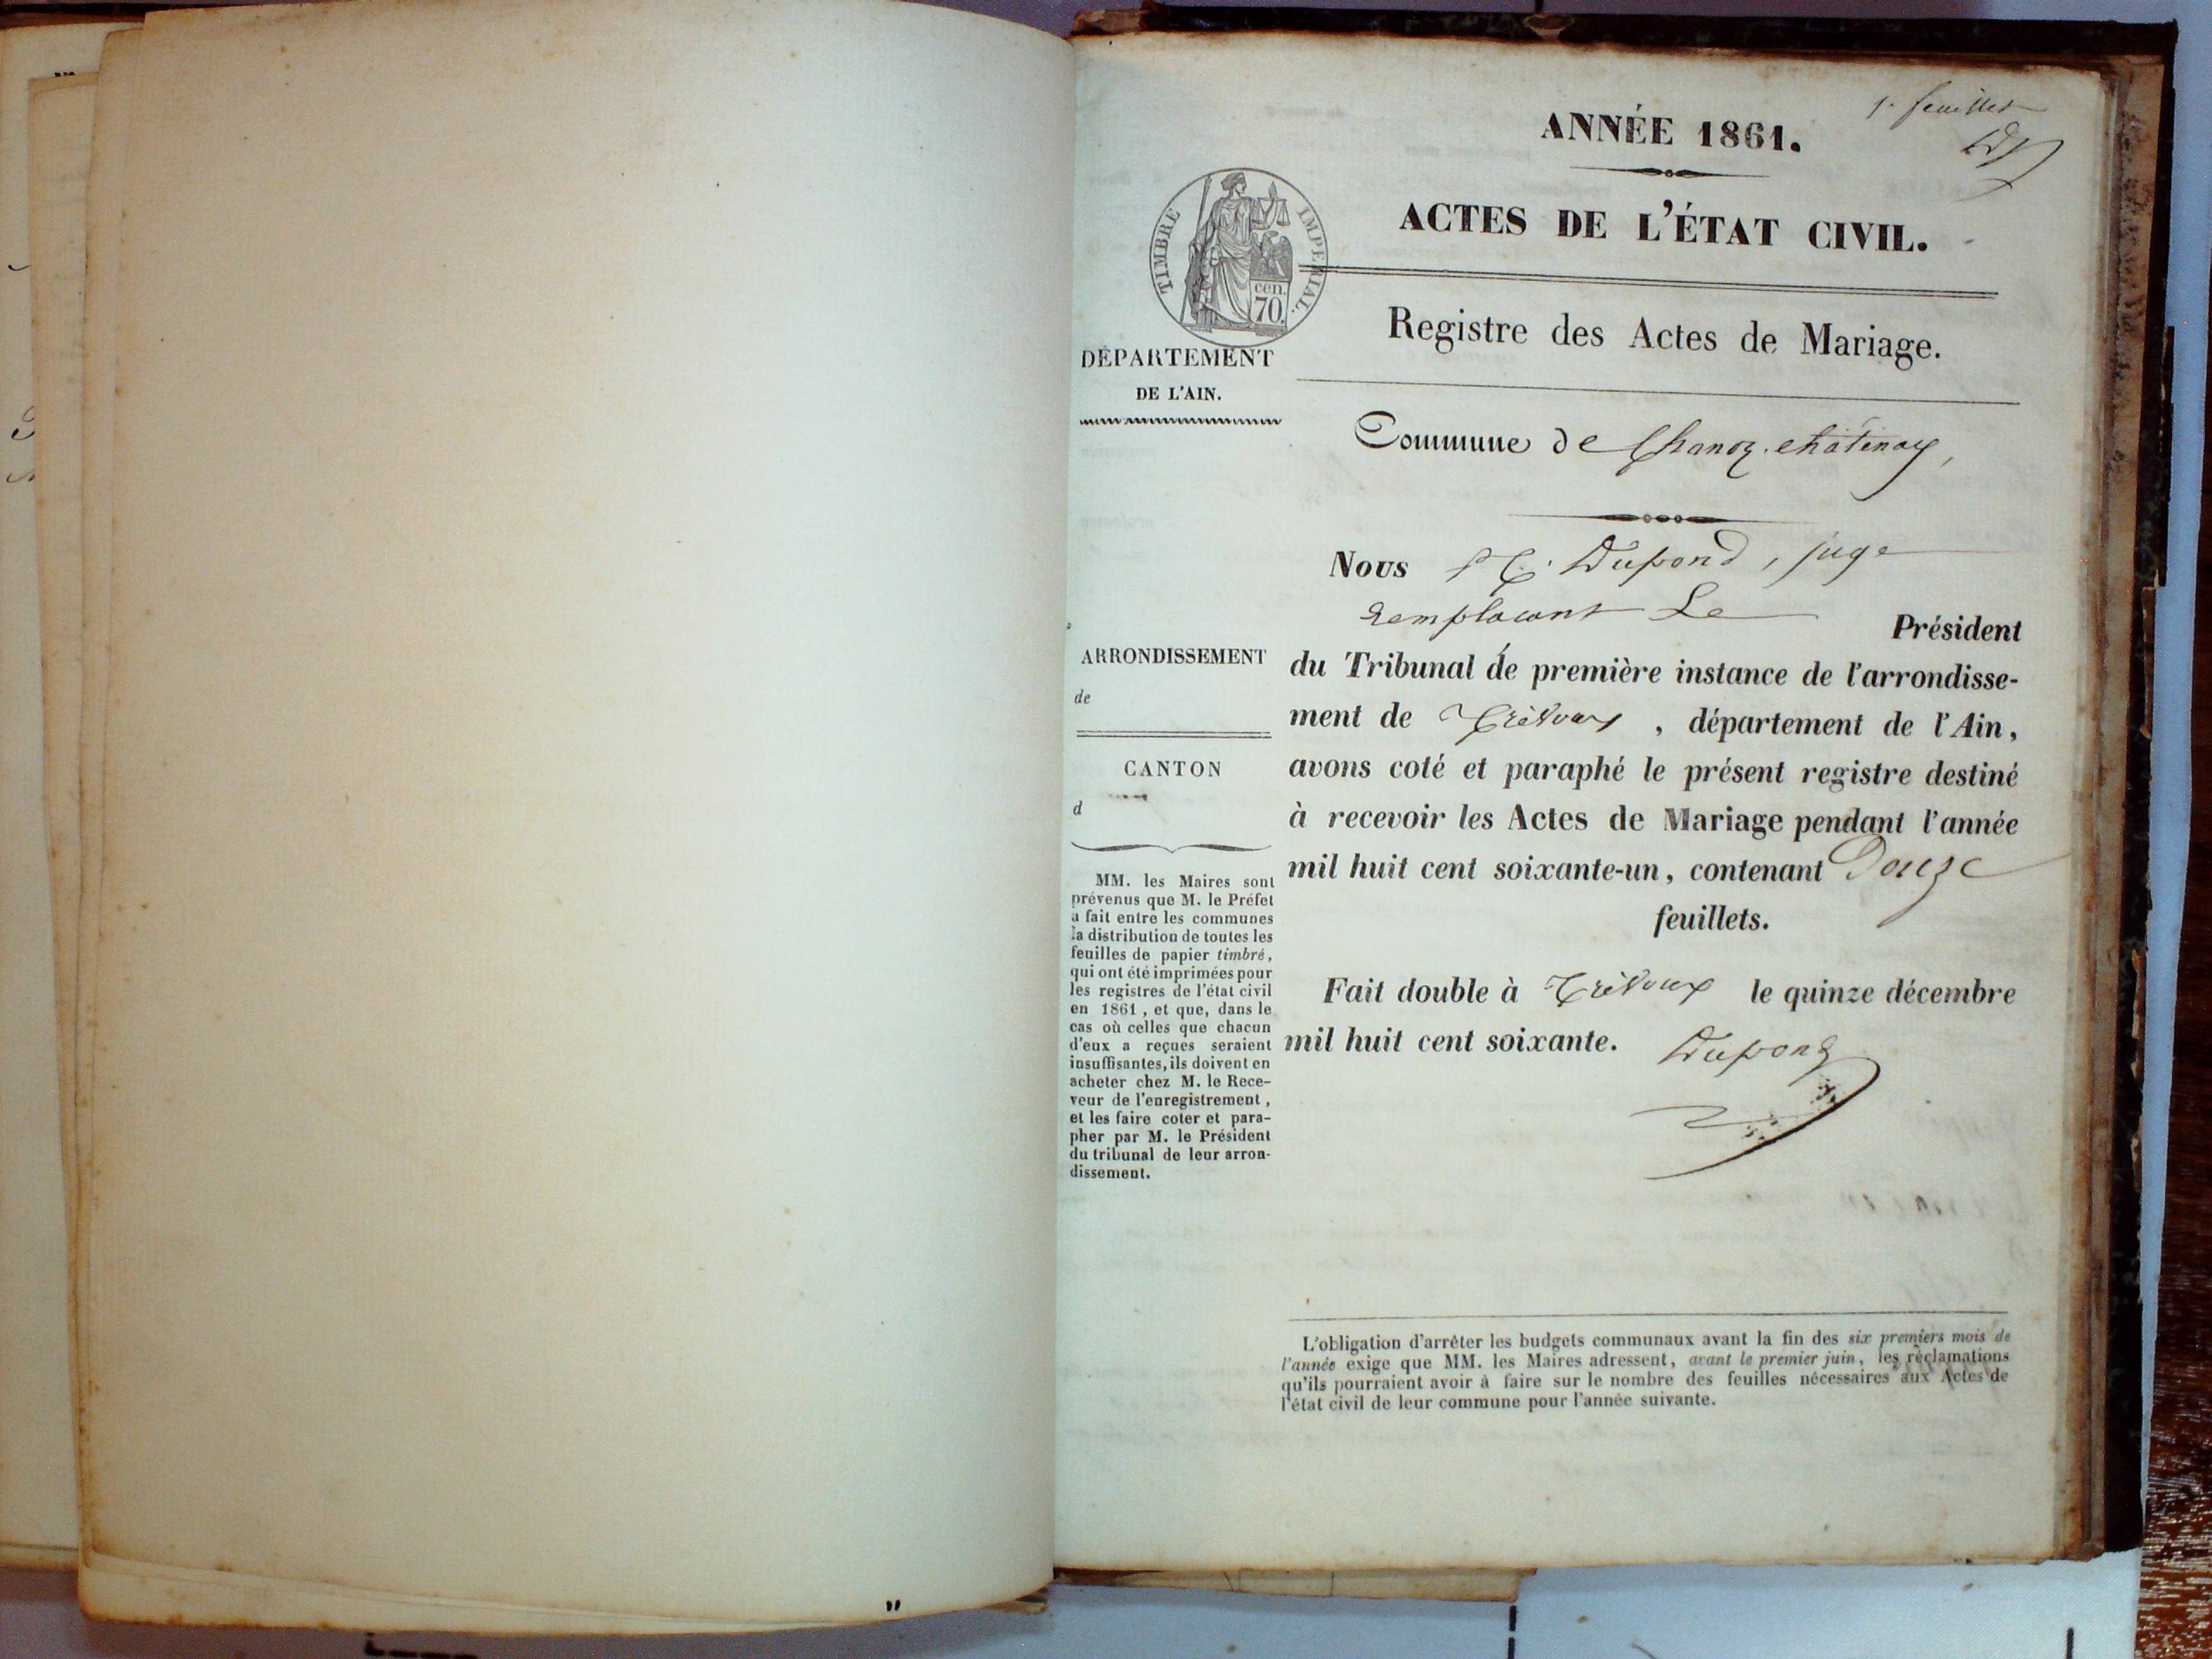 1er feuillet
ANNÉE 1861.
ACTES DE L'ÉTAT CIVIL.
TIMBRE IMPERIAL.
cen.
70.
Registre des Actes de Mariage.
DÉPARTEMENT
DE L'AIN.
Commune de Chanoz-châtenay,
Nous Dupond, juge
remplacant Le Président
du Tribunal de première instance de l'arrondisse-
ment de Trévoux, département de l'Ain,
avons coté et paraphé le présent registre destiné
à recevoir les Actes de Mariage pendant l'année
mil huit cent soixante-un, contenant Douze
feuillets.
Fait double à Trévoux le quinze décembre
mil huit cent soixante. Dupond
ARRONDISSEMENT
de
CANTON
d
MM. les Maires sont
prévenus que M. le Préfet
a fait entre les communes
la distribution de toutes les
feuilles de papier timbré,
qui ont été imprimées pour
les registres de l'état civil
en 1861, et que, dans le
cas où celles que chacun
d'eux a reçues seraient
insuffisantes, ils doivent en
acheter chez M. le Rece-
veur de l'enregistrement,
et les faire coter et para-
pher par M. le Président
du tribunal de leur arron-
dissement.
L'obligation d'arrêter les budgets communaux avant la fin des six premiers mois de
l'année exige que MM. les Maires adressent, avant le premier juin, les réclamations
qu'ils pourraient avoir à faire sur le nombre des feuilles nécessaires aux Actes de
l'état civil de leur commune pour l'année suivante.